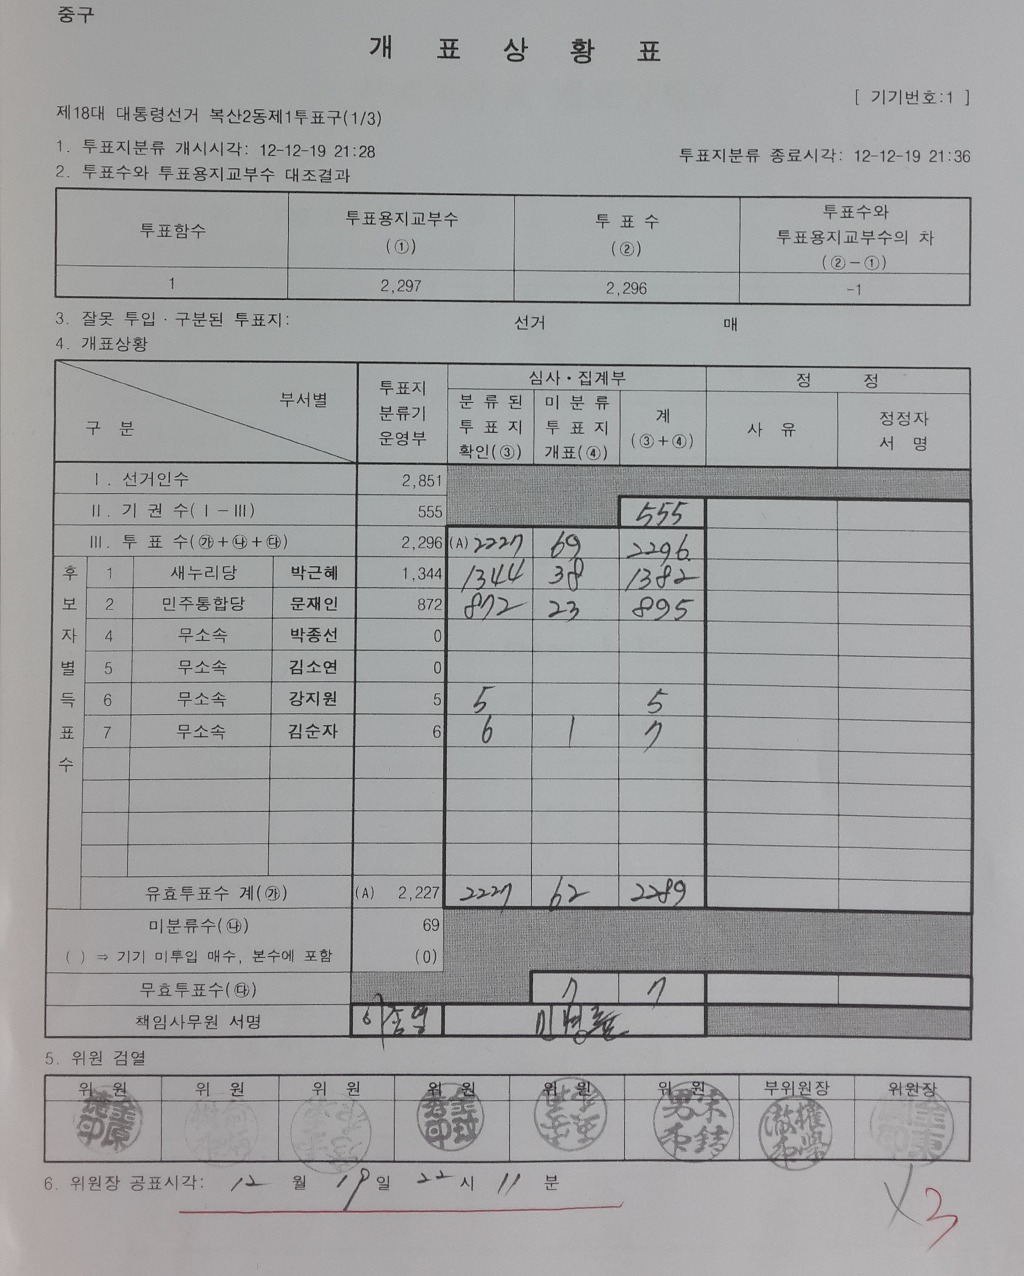 중구
개 표 상 황 표
[ 기기번호:1 ]
제18대 대통령선거 복산2동제1투표구(1/3)
1. 투표지분류 개시시각: 12-12-19 21:28 투표지분류 종료시각: 12-12-19 21:36
2. 투표수와 투표용지교부수 대조결과
투표함수 투표용지교부수 (①) 투 표 수 (②) 투표수와 투표용지교부수의 차 (②-①)
1 2,297 2,296 -1
3. 잘못 투입·구분된 투표지: 선거 매
4. 개표상황
구 분 부서별 투표지 분류기 운영부 심사·집계부 정 정
분 류 된 투 표 지 확인(③) 미 분 류 투 표 지 개표(④) 계 (③+④) 사 유 정정자 서 명
Ⅰ. 선거인수 2,851
Ⅱ. 기 권 수(Ⅰ-Ⅲ) 555 555
Ⅲ. 투 표 수(㉮+㉯+㉰) 2,296 (A) 2227 69 2296
후보자별득표수
1 새누리당 박근혜 1,344 1344 38 1382
2 민주통합당 문재인 872 872 23 895
4 무소속 박종선 0
5 무소속 김소연 0
6 무소속 강지원 5 5 5
7 무소속 김순자 6 6 1 7
유효투표수 계(㉮) (A) 2,227 2227 62 2289
미분류수(㉯) 69
( ) ⇒ 기기 미투입 매수, 본수에 포함 (0)
무효투표수(㉰) 7 7
책임사무원 서명
5. 위원 검열
위 원 위 원 위 원 위 원 위 원 위 원 부위원장 위원장
6. 위원장 공표시각: 12 월 19 일 22 시 11 분
3